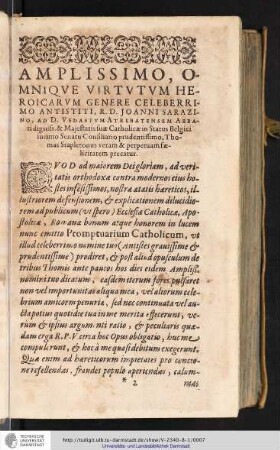 AMPLISSIMO, O-
MNIQVE VIRTVTVM HE-
ROICARVM GENERE CELEBERRI-
MO ANTISTITI, R.D. JOANNI SARAZI-
NO, AD D. VEDASTVM ATREBATENSEM ABBA-
ti digniss. & Majestatis suæ Catholicæ in Status Belgici
intimo Senatu Consiliario prudentissimo, Tho-
mas Stapletonus veram & perpetuam fæ-
licitatem precatur.
QVOD ad maiorem Dei gloriam, ad veri-
tatis orthodoxæ contra modernos eius ho-
stes infēsissimos, nostra ætatis hæreticos, il-
lustriorem defensionem, & explicationem dilucidio-
rem ad publicum (vt spero) Ecclesiæ Catholicæ, Apo-
stolicæ, Romanæ bonum atque honorem in lucem
nunc emitto Promptuarium Catholicum, vt
illud celeberrimo nomine tuo (Antistes grauissime &
prudentissime) prodiret, & post aliud opusculum de
tribus Thomis ante paucos hos dies eidem Amplis.
nomini tuo dicatum, easdem iterum fores pulsaret
non vel importunitas aliqua mea, vel alterum celē-
brum amicorum penuria, sed nec continuata vel au-
cta potius quotidie tua in me merita effecerunt, ve-
rum & ipsius argumēti ratio, & peculiaris quæ-
dam erga R.P.V. circa hoc Opus obligatio, huc me
compulerunt, & hoc à me quasi debitum exegerunt.
Quæ enim ad hæreticorum impietates pro concio-
ne refellendas, fraudes populo aperiendas, calum-
* 2
nias
TECHNISCHE
UNIVERSITÄT
DARMSTADT
http://tudigit.ulb.tu-darmstadt.de/show/V-2340-8-1/0007
Universitäts- und Landesbibliothek Darmstadt